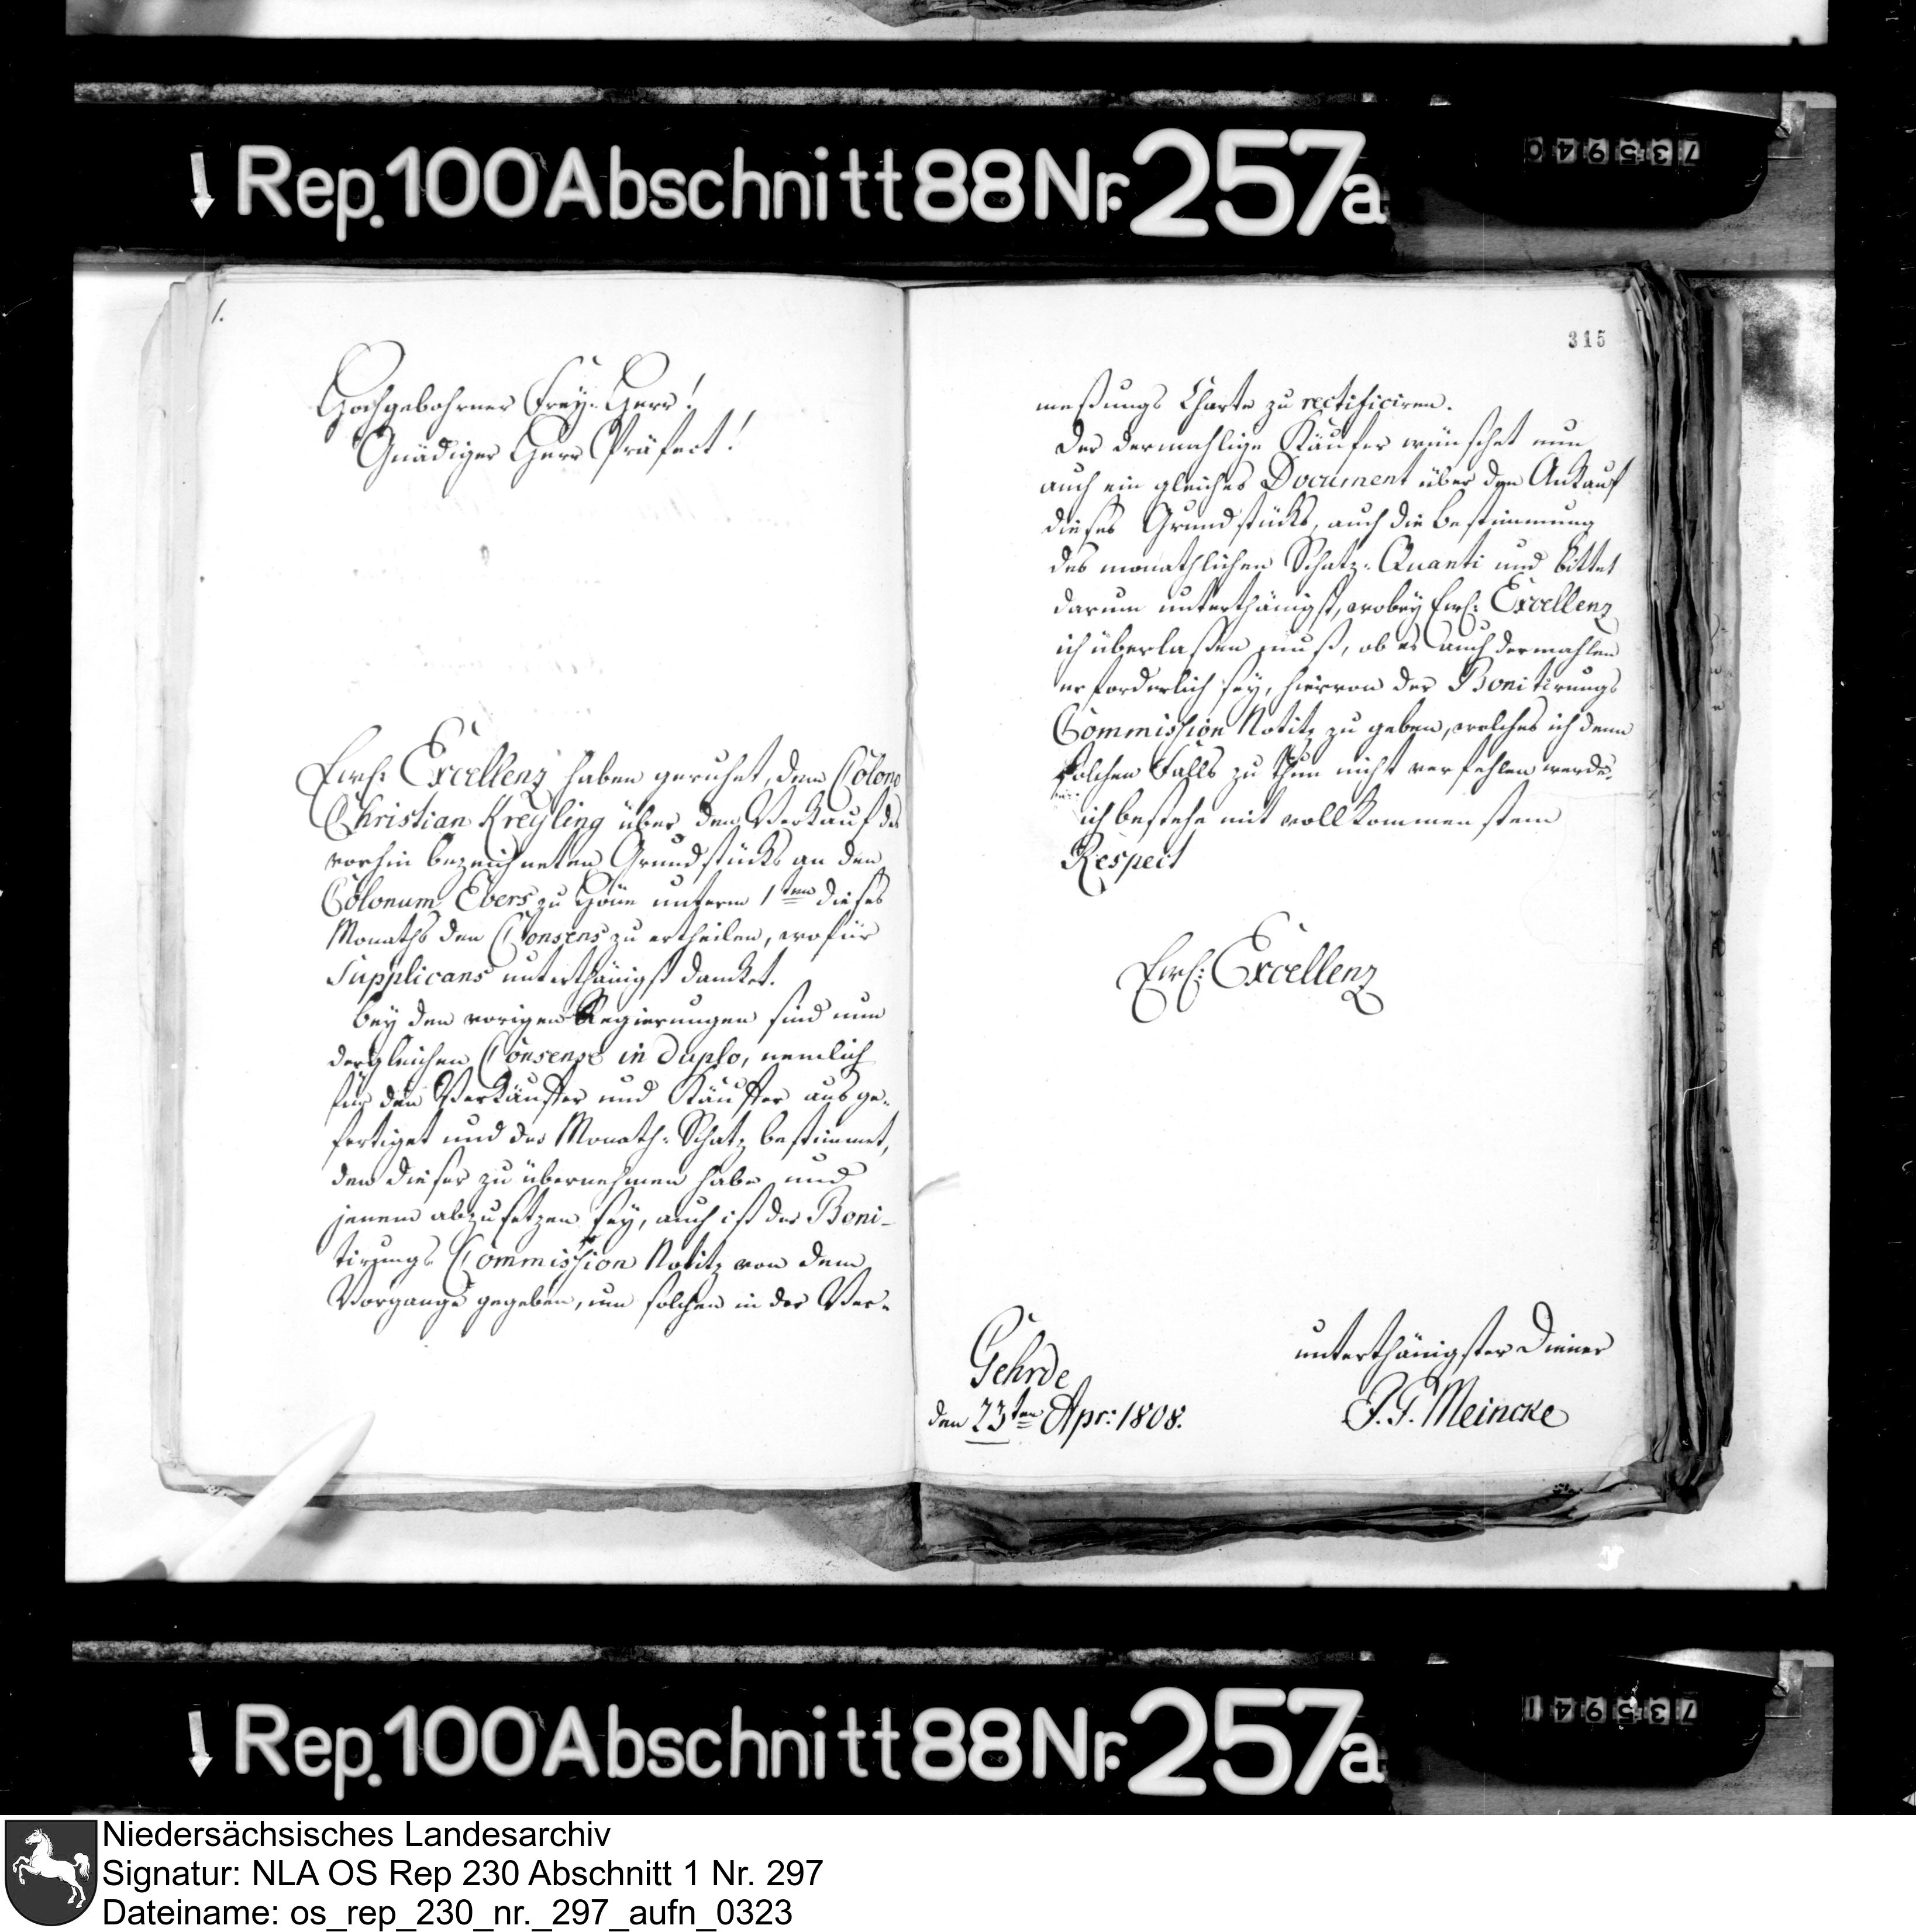 Rep. 100 Abschnitt 88 Nr. 257a
735940
1.
Hochgebohrner Frey-Herr!
Gnädiger Herr Präfect!
Ewr: Excellenz haben geruhet, dem Colono
Christian Kreyling über den Verkauf des
vorhin bezeichneten Grundstücks an den
Colonum Evers zu Höne unterm 1ten dieses
Monaths den Consens zu ertheilen, wofür
Supplicans unterthänigst dancket.
Bey den vorigen Regierungen sind nun
dergleichen Consense in duplo, nemlich
für den Verkäuffer und Käuffer ausge-
fertiget und der Monath-Schatz bestimmet,
den dieser zu übernehmen habe und
jenem abzusetzen sey, auch ist der Boni-
tirungs Commission Notitz von dem
Vorgange gegeben, um solchen in der Ver-
315
meßungs Charte zu rectificiren.
Der dermahlige Käufer wünschet nun
auch ein gleiches Document über den Ankauf
dieses Grundstücks, auch die Bestimmung
des monathlichen Schatz-Quanti und bittet
darum unterthänigst, wobey Ewr: Excellenz
ich überlaßen muß, ob es auch dermahlen
erforderlich sey, hiervon der Bonitirungs
Commission Notitz zu geben, welches ich denn
solchen Falls zu thun nicht verfehlen werde.
ich bestehe mit vollkommenstem
Respect
Ewr: Excellenz
Gehrde
den 23ten Apr: 1808.
unterthänigster Diener
J. G. Meincke
Rep. 100 Abschnitt 88 Nr. 257a
735941
Niedersächsisches Landesarchiv
Signatur: NLA OS Rep 230 Abschnitt 1 Nr. 297
Dateiname: os_rep_230_nr._297_aufn_0323